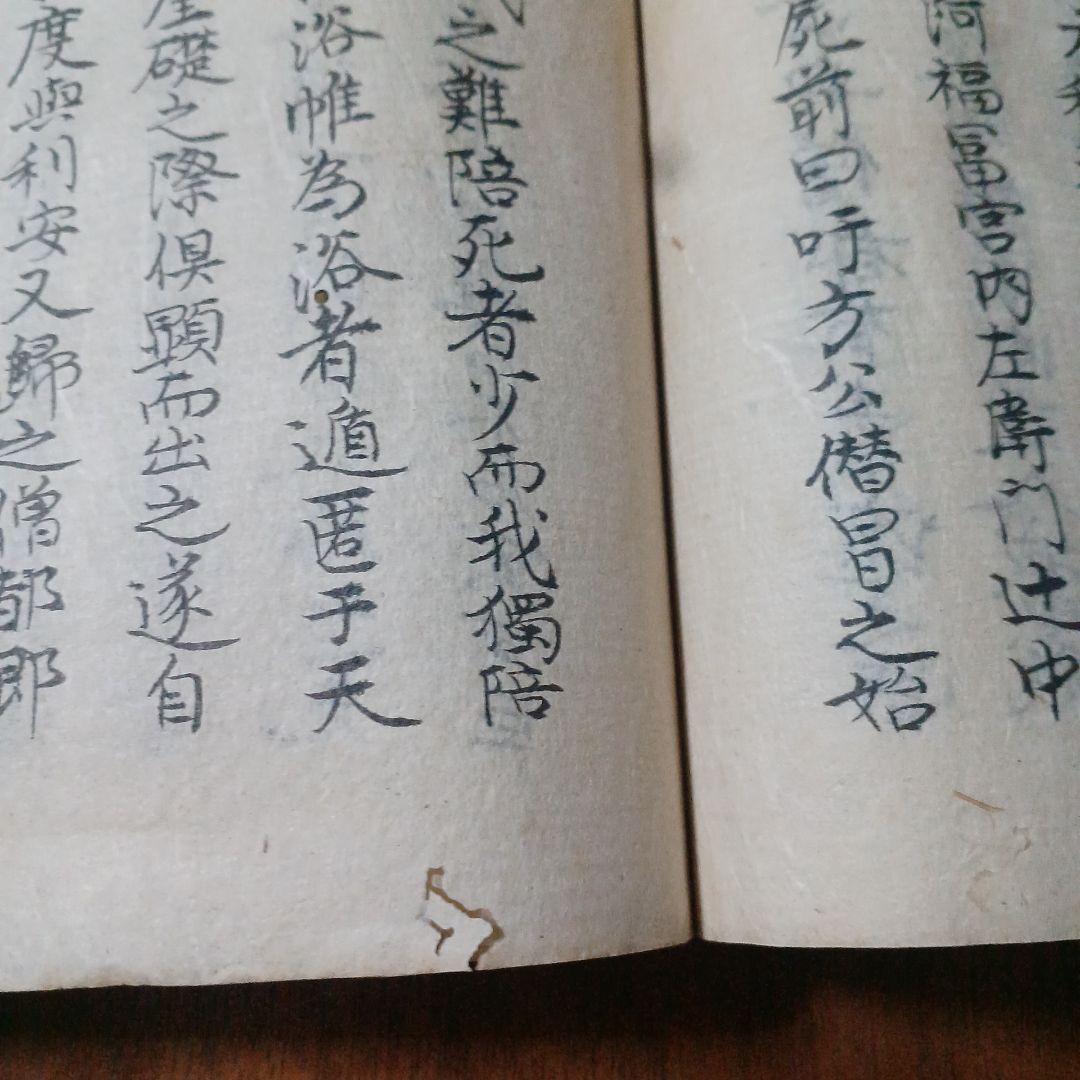 阿福冨宮内左爵门辻中
屍前曰吁方公僭冒之始
之難陪死者少而我獨陪
浴帷為浴者遁匿于天
礎之際俱顕而出之遂自
度與利安又歸之僧都郎